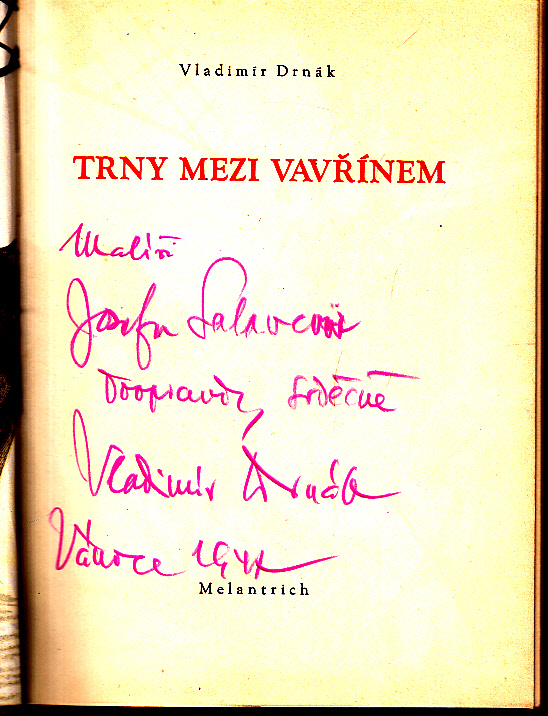 Vladimír Drnák
TRNY MEZI VAVŘÍNEM
Malíři
Josefu
Doopravdy srdečně
Vladimír Drnák
Vánoce
Melantrich